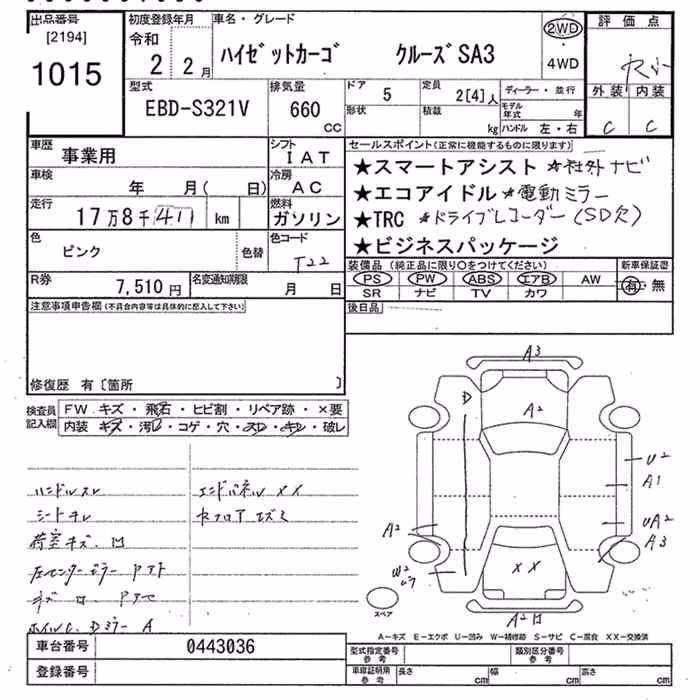 出品番号
[2194]
1015
初度登録年月
令和
2 2月
車名・グレード
ハイゼットカーゴ クルーズSA3
2WD
・
4WD
評価点
外装 内装
C C
型式
EBD-S321V
排気量
660
CC
ドア
5
定員
2[4]人
ディーラー・並行
形状
積載
kg
モデル年式
年
ハンドル 左・右
車歴
事業用
シフト
IAT
車検
年 月( 日)
冷房
AC
走行
17万8千411 km
燃料
ガソリン
色
ピンク
色替
色コード
T22
R券
7,510円
名変通知期限
月 日
セールスポイント(正常に機能するものに限ります)
★スマートアシスト ★社外ナビ
★エコアイドル ★電動ミラー
★TRC ★ドライブレコーダー(SD欠)
★ビジネスパッケージ
装備品(純正品に限り〇をつけてください)
PS PW ABS エアB AW
SR ナビ TV カワ
新車保証書
有・無
注意事項申告欄(不具合内容等は具体的に記入して下さい)
後日品
修復歴 有〔箇所 〕
検査員
記入欄
FW キズ・飛石・ヒビ割・リペア跡・×要
内装 キズ・汚レ・コゲ・穴・スレ・キレ・破レ
ハンドルスレ
エンドパネル XX
シートキレ
荷室キズ、凹
A3
D
A2
U2
A1
UA2
A3
A2
W2
XX
A2凹
スペア
A-キズ E-エクボ U-凹み W-補修跡 S-サビ C-腐食 XX-交換済
車台番号
0443036
登録番号
型式指定番号
参考
類別区分番号
参考
車庫証明用
参考
長さ cm
幅 cm
高さ cm